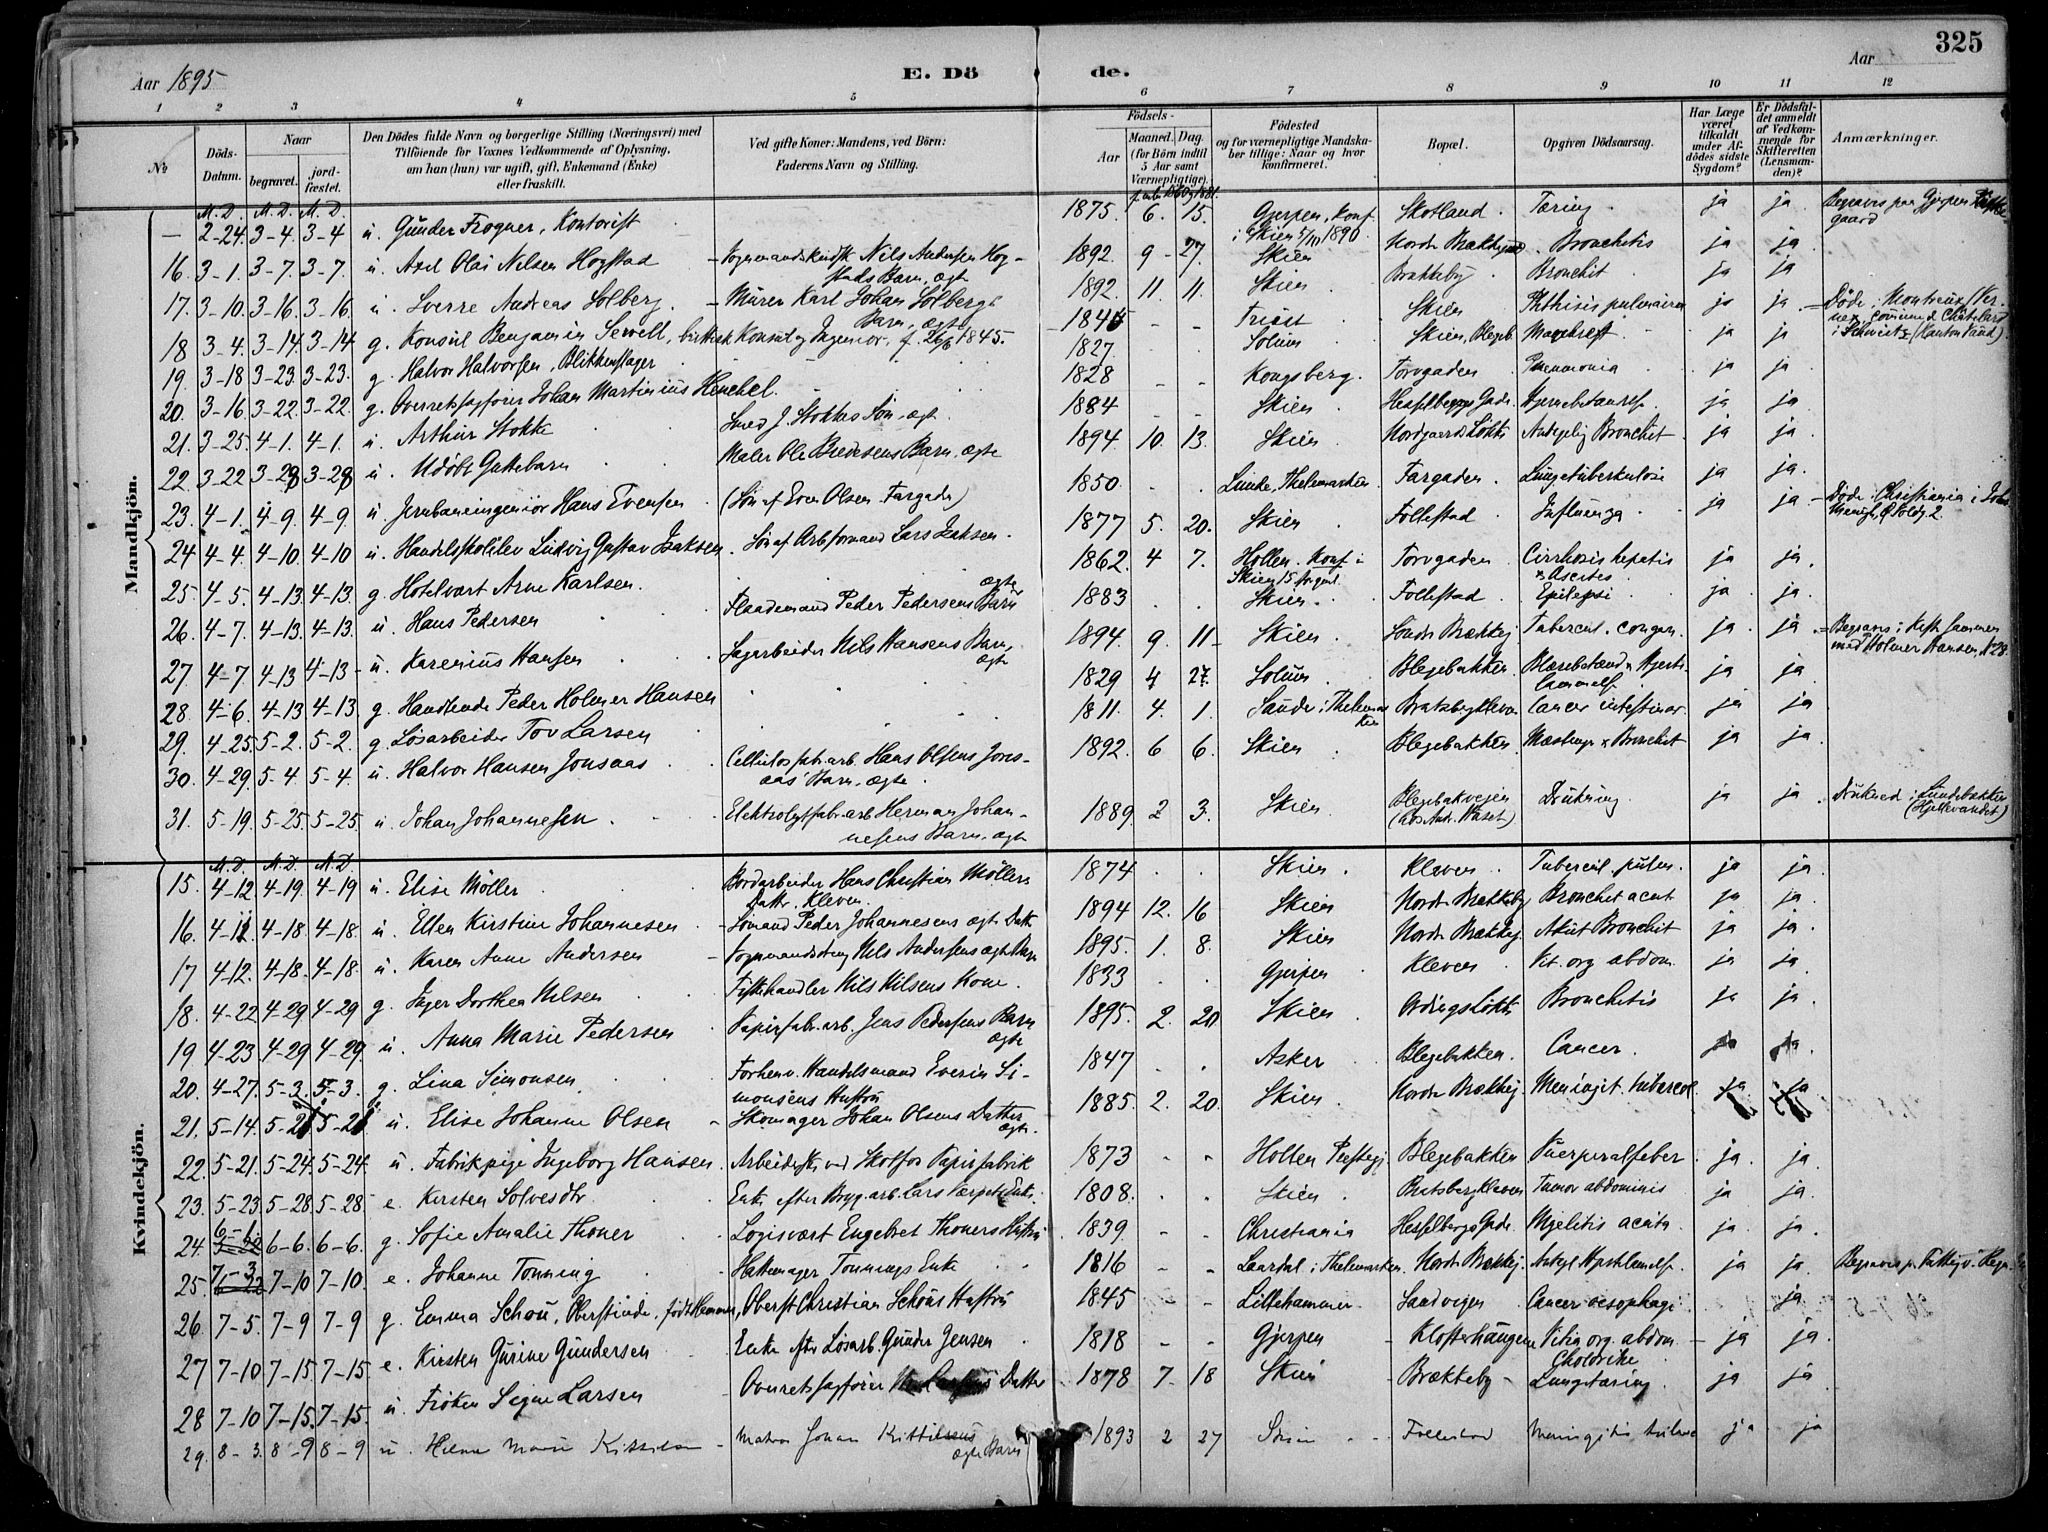 325
Aar 1895
E. Dö de.
Aar
1 2 3 4 5 6 7 8 9 10 11 12
No
Döds-Datum.
Naar
begravet. jord-fæstet.
Den Dödes fulde Navn og borgerlige Stilling (Næringsvei) med Tilföiende for Voxnes Vedkommende af Oplysning, om han (hun) var ugift, gift, Enkemand (Enke) eller fraskilt.
Ved gifte Koner: Mandens, ved Börn: Faderens Navn og Stilling.
Födsels-
Aar
Maaned. Dag.
(for Börn indtil 5 Aar samt Værnepligtige).
Födested og for værnepligtige Mandskaber tillige: Naar og hvor konfirmeret.
Bopæl.
Opgiven Dödsaarsag.
Har Læge været tilkaldt under Afdödes sidste Sygdom?
Er Dödsfaldet anmeldt af Vedkommende for Skifteretten (Lensmanden)?
Anmærkninger.
Mandkjön.
M. D. M. D. M. D.
— 2-24. 3-4. 3-4 u. Gunder Frogner, Kontorist 1875. 6. 15. Gjerpen, Konf. i Skien 5/10 1890 Skotland. Tæring ja ja Begravet paa Gjerpen Kirkegaard
16. 3-1. 3-7. 3-7. u. Axel Olai Nilsen Hogstad - Vognmandskudsk Nils Andersen Hogstads Barn, ægte 1892. 9 - 27. Skien Nordr. Brækkeby Bronchitis ja ja
17. 3-10. 3-16. 3-16. u. Sverre Andreas Solberg. - Murer Karl Johan Solbergs Barn, ægte 1892. 11. 11. Skien Brækkeby Bronchit ja ja
18 3-4. 3-14. 3-14 g. Konsul Benjamin Sewell, brittisk Konsul og Ingeniør, f. 26/6 1845. 1845 - - Triest Skien Phthisis pulmonum ja ja - Døde i Montreux
i Schweitz (Kanton Vaud).
19. 3-18 3-23. 3-23. g. Halvor Halvorsen, Blikkenslager 1827. Solum Skien, Blegeb. Mavekreft ja ja
20. 3-16. 3-22. 3-22. g. Overretssagfører Johan Martinius Henchel. 1828 - - Kongsberg. Torvgaden Pneumonia ja ja
21. 3-25. 4-1. 4-1. u. Arthur Stokke Smed J. Stokkes Søn, ægte 1884 - - Skien Hesselbergs Gade. ja ja
22. 3-22 3-28 3-28 u. Udøbt Guttebarn Maler Ole Bredesens Barn, ægte 1894. 10. 13. Skien Nordgaards Løkke Antagelig Bronchit. ja ja
23. 4-1. 4-9. 4-9. u Jernbaneingeniør Hans Evensen (Søn af Even Olsen Fargadn) 1850. Lunde, Thelemarken Fargaden. Lungetuberkulose ja ja.
24. 4-4. 4-10. 4-10 u. Handelsskolelev Ludvig Gustav Isaksen. Søn af Arbformand Lars Isaksen. 1877 5. 20. Skien Follestad Influenza ja ja - Døde i Christiania
25. 4-5. 4-13. 4-13. g. Hotelvært Arne Karlsen. 1862. 4 7. Hollen. Konf i Skien Torvgaden Cirrhosis hepatis & Ascites ja ja.
26. 4-7. 4-13. 4-13. u. Hans Pedersen Flaademand Peder Pedersens Barn ægte 1883 Skien Follestad Epilepsi ja ja.
27. 4-7 4-13 4-13 - u. Karenius Hansen Sagarbeider Nils Hansens Barn, ægte 1894. 9. 11 Skien. Søndr. Brækkeby Tubercul. congen. ja ja - Begravet i Kiste sammen med Holmer Hansen, N 28.
28 4-6. 4-13. 4-13. g. Handlende Peder Holmer Hansen 1829 4 27. Solum Blegebakken ja ja
29. 4-25. 5-2. 5-2. g. Løsarbeider Tov Larsen 1811. 4. 1. Saude i Thelemarken Bratsbergkleven Cancer intestinor. ja ja
30. 4-29. 5-4. 5-4. u. Halvor Hansen Jonsaas Cellulosfabr.arb. Hans Olsens Jonsaas' Barn, ægte. 1892. 6 6. Skien Blegebakken Mæslinger & Bronchit ja ja
31. 5-19. 5-25. 5-25. u. Johan Johannesen Elektrolytfabr.arb. Herman Johannesens Barn, ægte 1889. 2 3. Skien Blegebakvejen Drukning. ja ja. Druknede i Lundebækken (Hjellevandet)
Kvindekjön.
M. D. M. D. M. D.
15. 4-12 4-19. 4-19 u. Elise Møller Bordarbeider Hans Christian Møllers Datter, Kleven 1874 Skien. Kleven Tubercul. pulm. ja ja
16. 4-12. 4-18. 4-18. u. Ellen Kirstine Johannesen - Sømand Peder Johannesens ægte Datt. 1894 12. 16 Skien Nordr. Brækkeby Bronchit acut ja ja
17 4-12. 4-18. 4-18. u. Karen Anne Andersen - Vognmandsdreng Nils Andersens ægte Barn 1895. 1. 8. Skien Nordr. Brækkeby. Akut Bronchit ja ja
18. 4-22 4-29 4-29 g. Inger Dorthea Nilsen Fiskehandler Nils Nilsens Kone. 1833 Gjerpen Kleven Vit. org. abdom. ja ja
19 4-23 4-29 4-29. u. Anna Marie Pedersen Papirfabr.arb. Jens Pedersens Barn ægte 1895. 2. 20 Skien Bronchitis ja ja
20. 4-27. 5-3. 5-3. g. Lina Simonsen Forhenv. Handelsmand Everin Simonsens Hustru 1847 Asker Blegebakken. Cancer. ja ja
21. 5-14. 5-21 5-21 u. Elise Johanne Olsen - Skomager Johan Olsens Datter ægte 1885. 2. 20. Skien Nordr. Brækkeby. Meningit. tubercul. ja ja
22. 5-21. 5-24. 5-24. u. Fabrikpige Ingeborg Hansen. Arbeiderske ved Skotfos Papirfabrik 1873 Hollen Blegebakken Puerperalfeber ja. ja.
23. 5-23. 5-28. 5-28. e. Kirsten Solvesdtr Enke efter Bryg.arb. Lars 1808. Skien Bratsbergkleven Tumor abdominis ja ja.
24. 6-6. 6-6. g. Sofie Amalie Thoner Logisvært Engebret Thoners Hustru 1839. Christiania Hesselbergs Gade. Myelitis acuta ja ja.
25. 7-3 7-10 7-10. e. Johanne Tonning Hattemager Tonnings Enke 1816 Laardal i Thelemarken. Nordr. Brækkeby. ja ja.
26. 7-5. 7-9 7-9 g. Emma Schou, Oberstinde, født Hammer, Oberst Christian Schous Hustru 1845 Lillehammer Landvejen Cancer oesophagi ja
27 7-10 7-15. 7-15. e. Kirsten Gurine Gundersen Enke efter Løsarb. Gunder Jensen 1818 Gjerpen - Klosterhaugene Vitia org. abdom. Cholerine - ja ja
28 7-10 7-15. 7-15. u. Frøken Signe Larsen Overretssagfører Larsens Datter 1878 7 - 18 Skien Brækkeby - Lungetæring ja ja
29. 8-3. 8-9 8-9 u Helene Marie Kittilsen - Matros Johan Kittilsens ægte Barn 1893 2 27 Skien Follestad Meningitis tuberc. ja ja